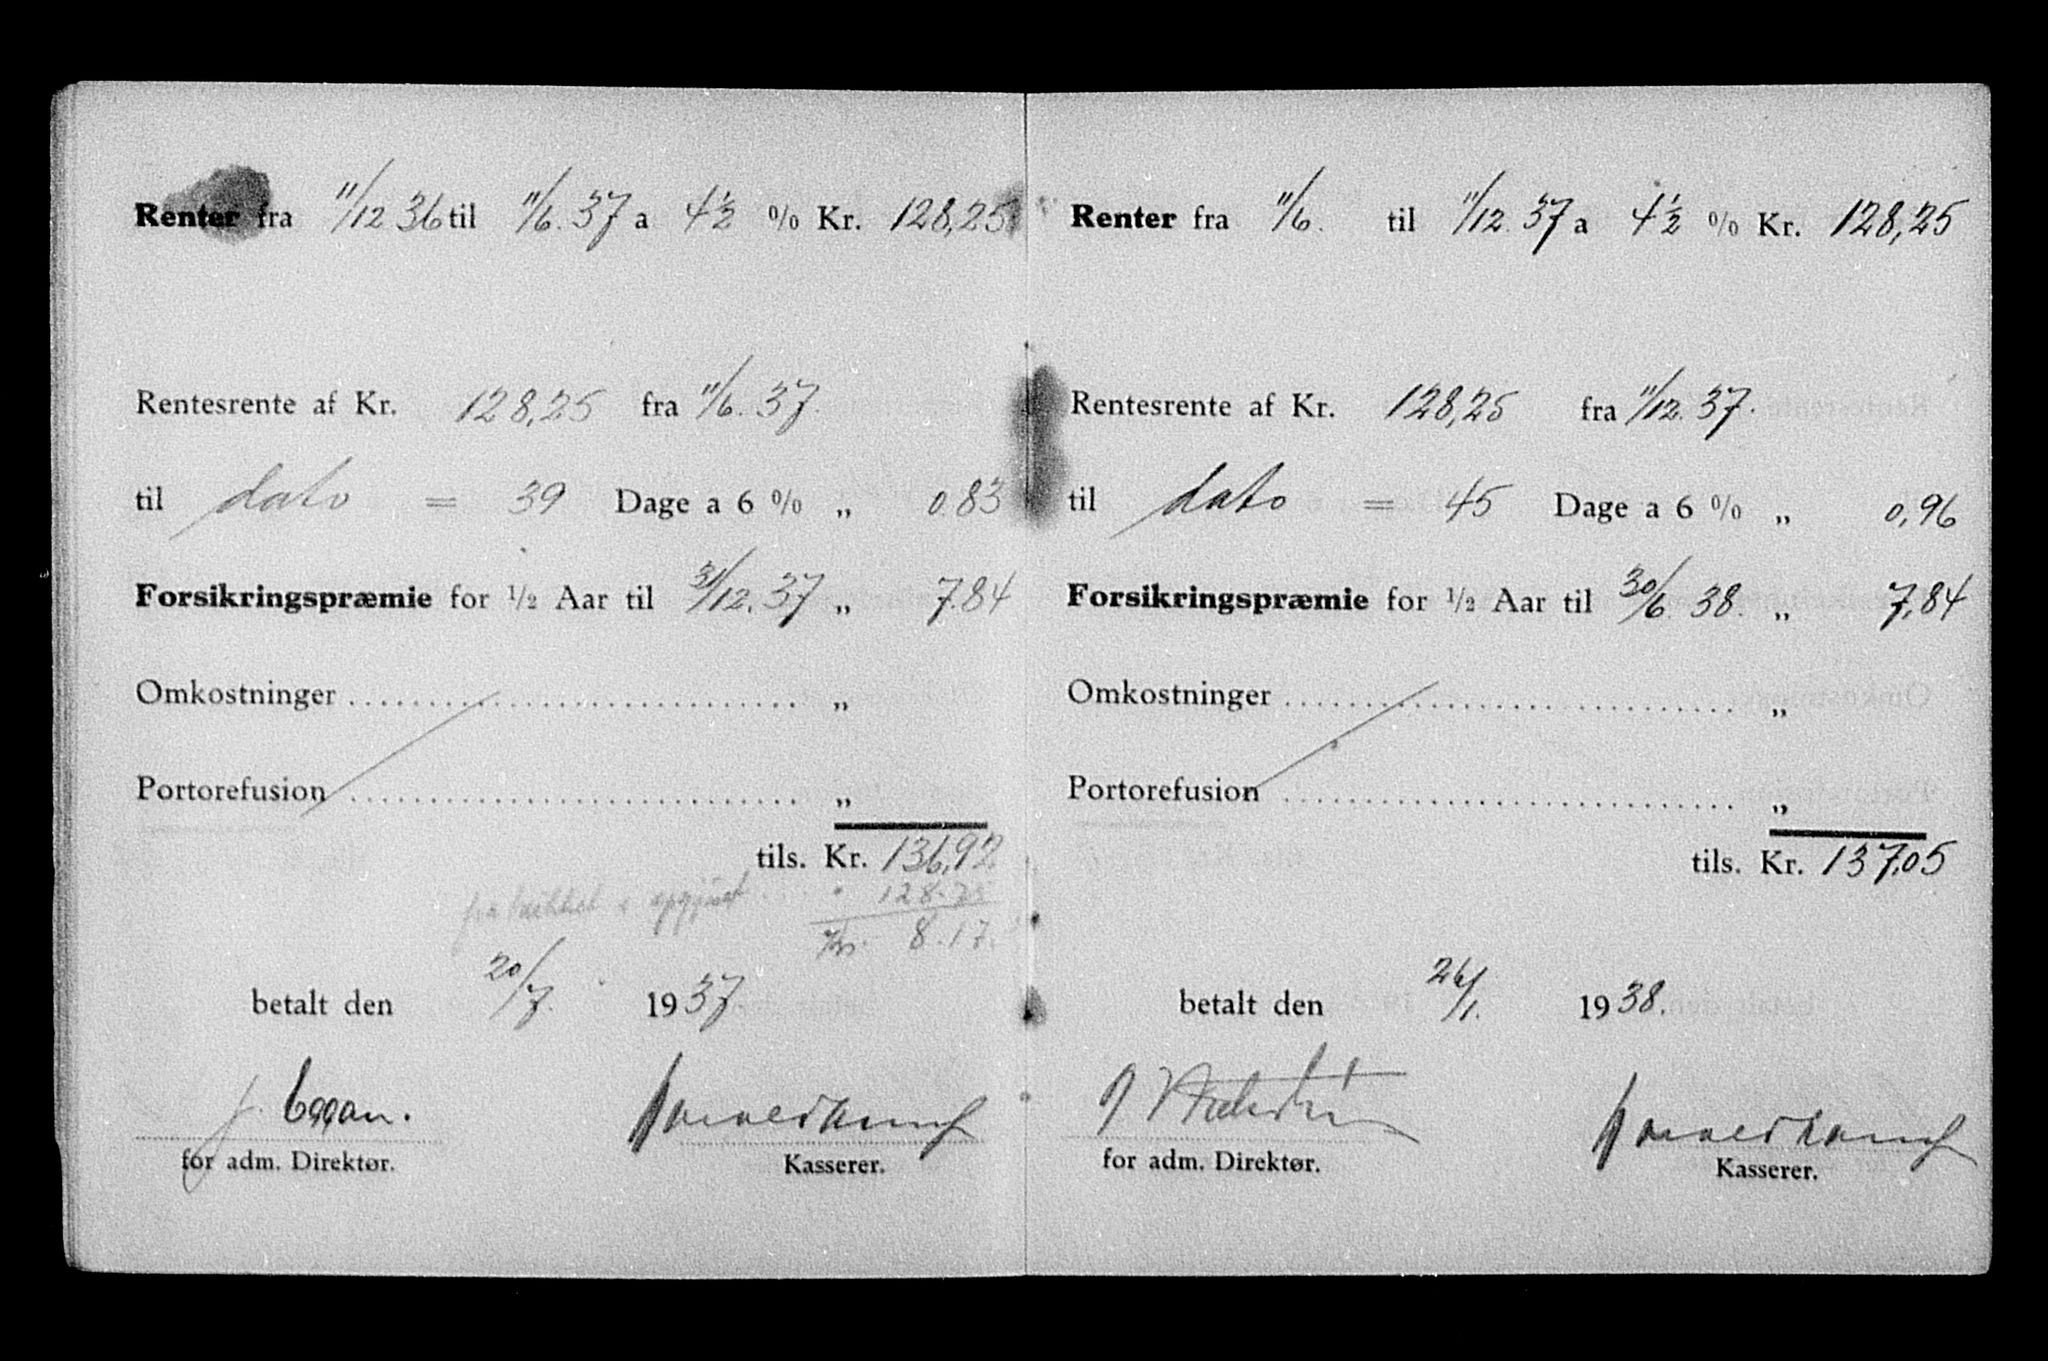 Renter fra 11/12 36 til 11/6. 37 a 4½ % Kr. 128,25
Rentesrente af Kr. 128,25 fra 11/6. 37.
til dato = 39 Dage a 6 % „ 0.83
Forsikringspræmie for ½ Aar til 31/12. 37 „ 7.84
Omkostninger .............................. „
Portorefusion .............................. „
tils. Kr. 136,92
128.75
Kr. 8.17.
betalt den 20/7. 1937
J. Eggan.
for adm. Direktør. Kasserer.
Renter fra 11/6. til 11/12. 37 a 4½ % Kr. 128,25
Rentesrente af Kr. 128,25 fra 11/12. 37.
til dato = 45 Dage a 6 % „ 0,96
Forsikringspræmie for ½ Aar til 30/6. 38. „ 7,84
Omkostninger .............................. „
Portorefusion .............................. „
tils. Kr. 137,05
betalt den 26/1. 1938.
for adm. Direktør. Kasserer.